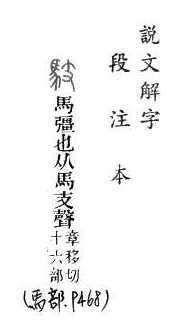 說文解字
段注本
䮈馬彊也从馬支聲章移切
十六部
(馬部.P468)